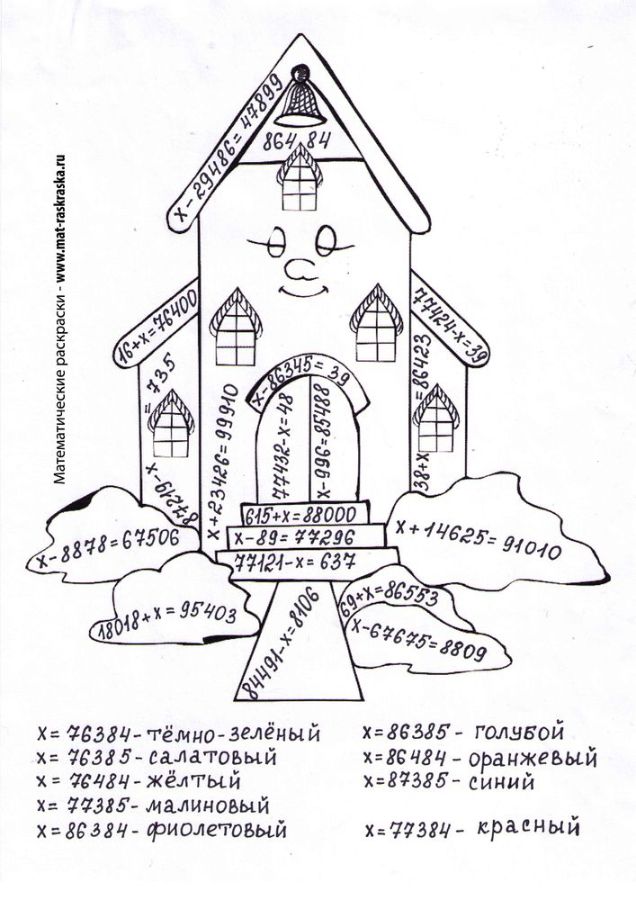 Математические раскраски - www.mat-raskraska.ru
x-29486=47899
864 84
16+x=76400
77424-x=39
x-86345=39
87219-x=735
x+23426=99910
77432-x=48
x-996=85488
38+x=86423
615+x=88000
x-89=77296
77121-x=637
x-8878=67506
x+14625=91010
18018+x=95403
84491-x=8106
69+x=86553
x-67675=8809
x=76384-тёмно-зелёный
x=76385-салатовый
x=76484-жёлтый
x=77385-малиновый
x=86384-фиолетовый
x=86385-голубой
x=86484-оранжевый
x=87385-синий
x=77384-красный